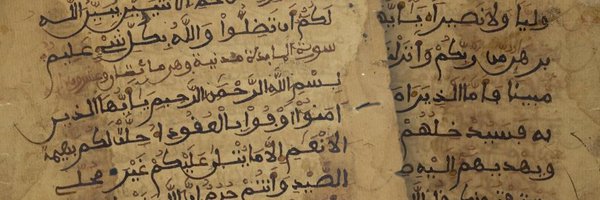 وليا ولا نصيرا يأيها
برهن من ربكم وأنزلنا
مبينا فأما الذين ءا
به فسيدخلهم
ويهديهم إليه ص
يبين الله
لكم أن تضلوا والله بكل شيء عليم
سورة المائدة مدنية وهي مائة وعشرون
بسم الله الرحمن الرحيم يأيها الذين
امنوا أوفوا بالعقود احلت لكم بهيمة
الانعم الا ما يتلى عليكم غير محلي
الصيد وأنتم حرم إن الله